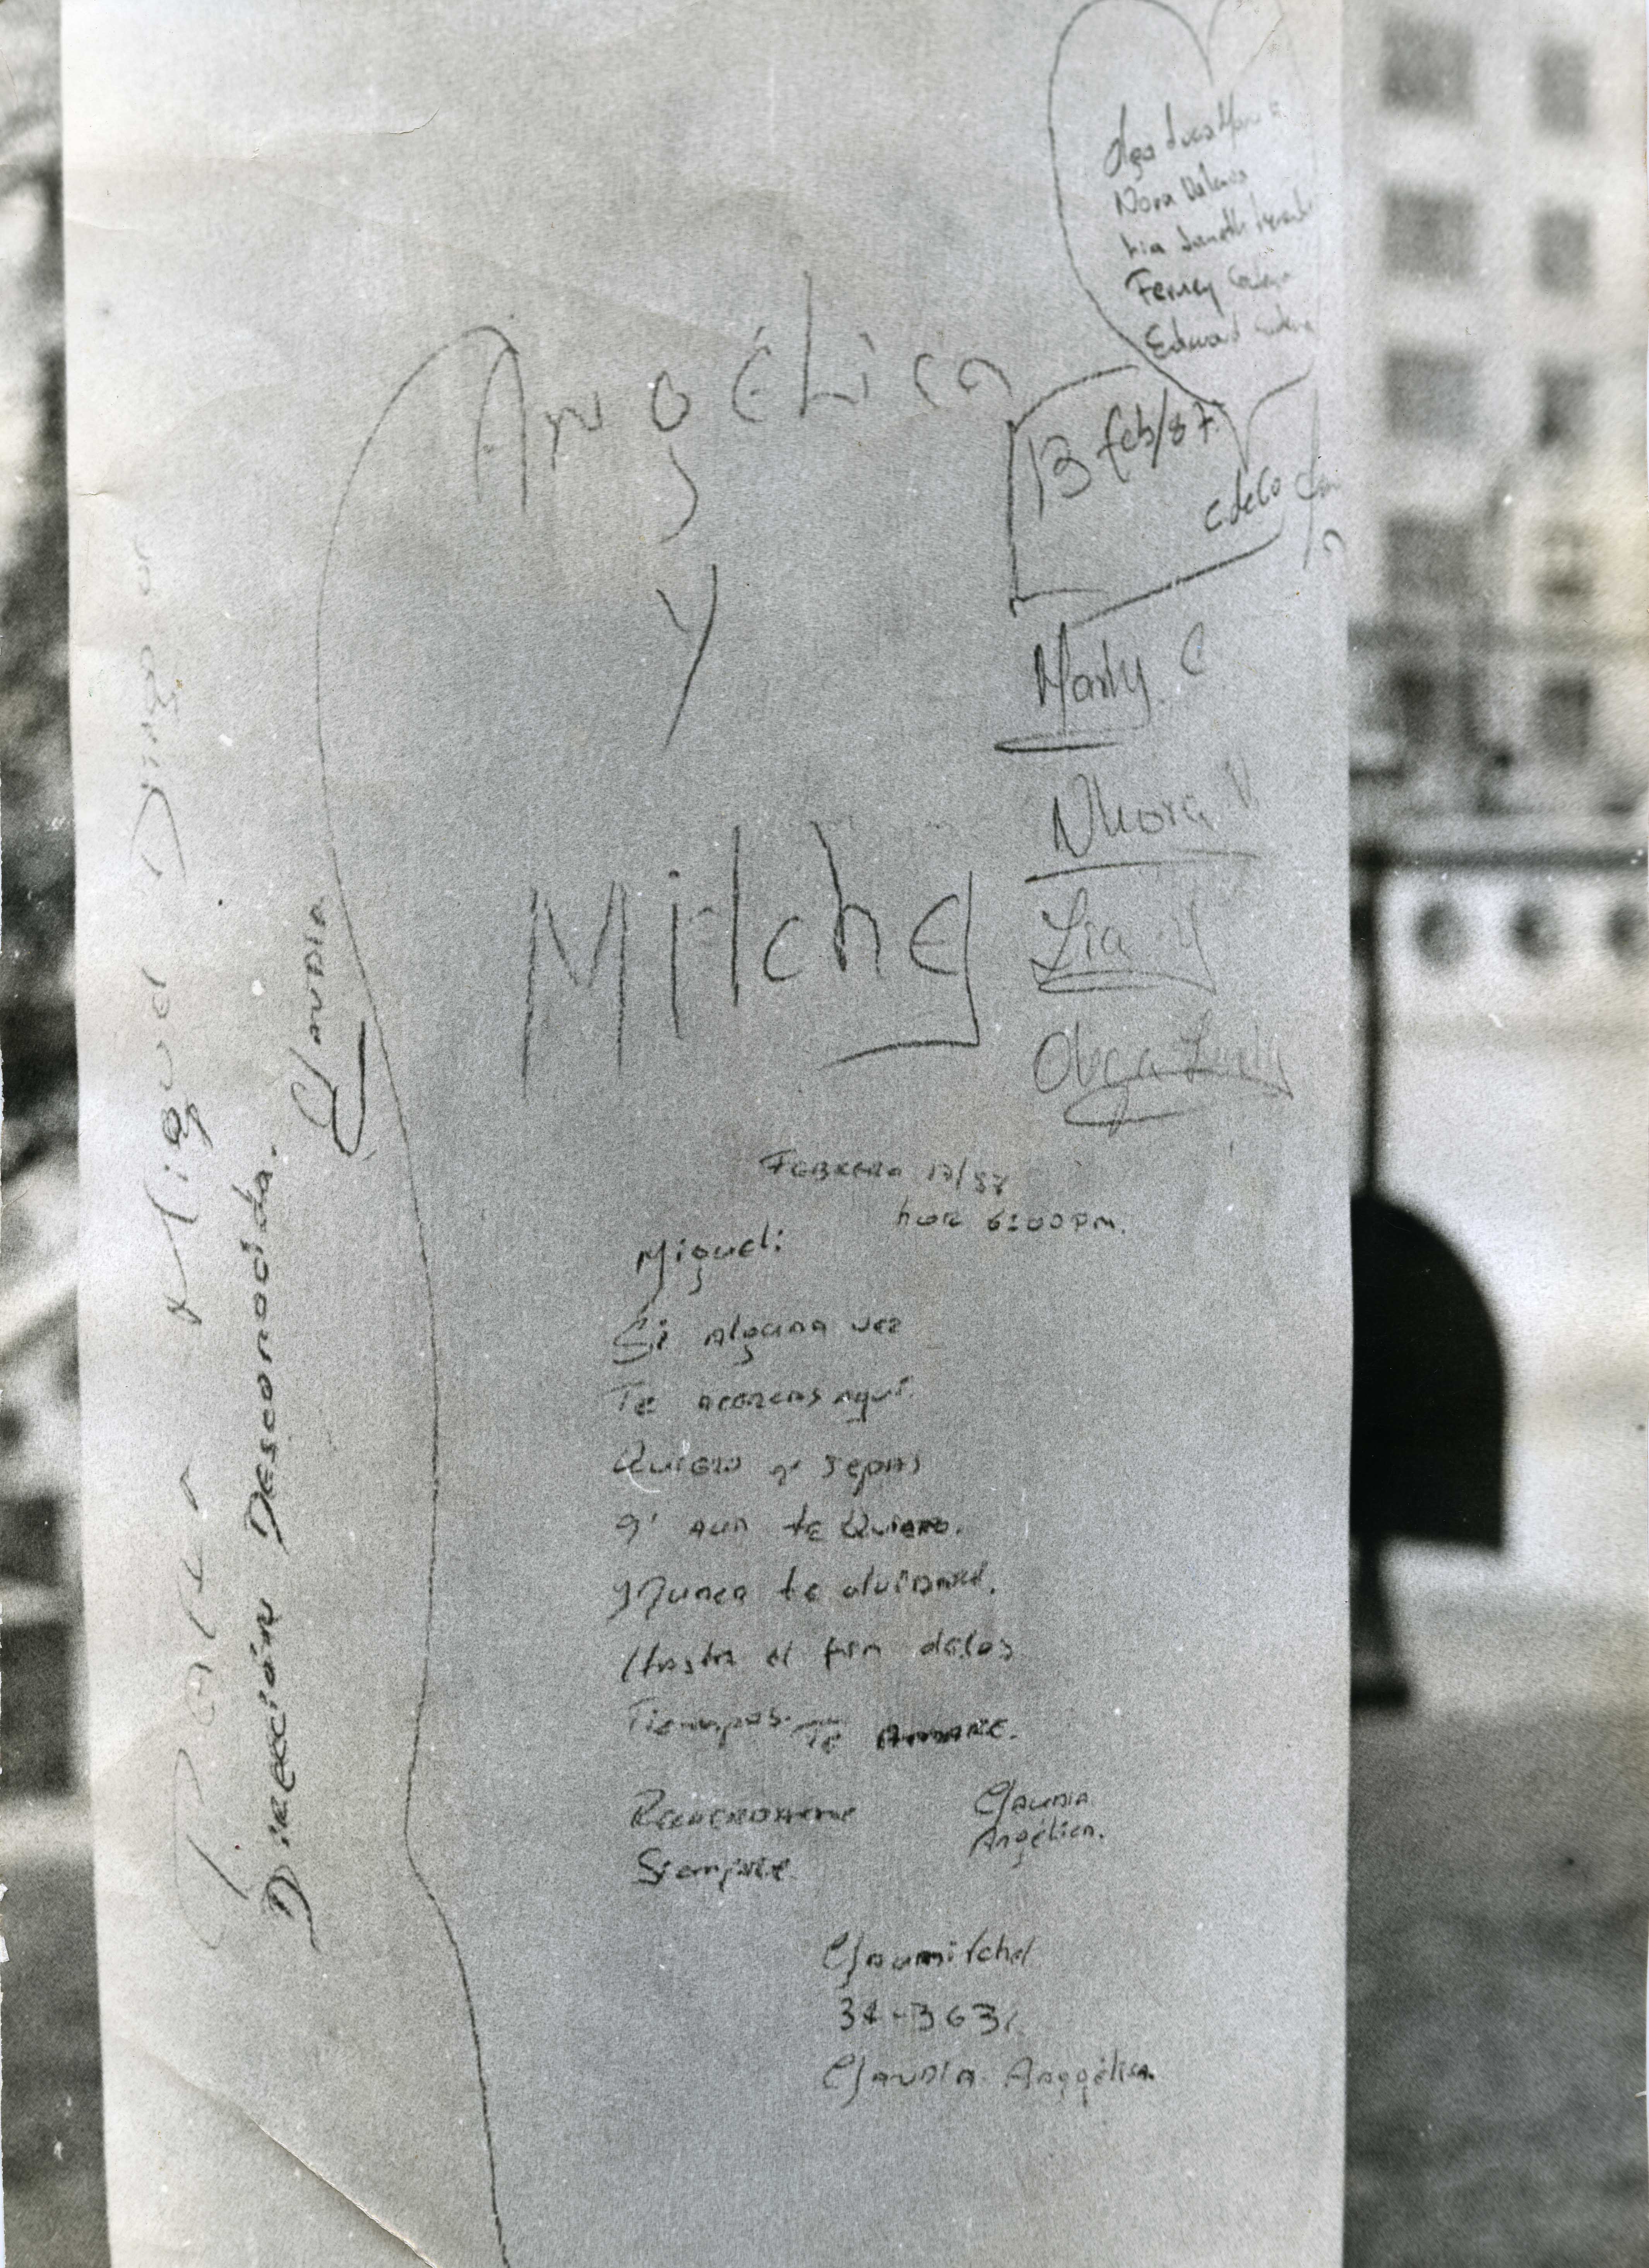 Olga
Nora
Lia Janeth
Ferney
Edward
Angélica
y
Mitchel
13 feb/87
Marly. C
Nhora V.
Lia
Olga
Para Miguel
Dirección Desconocida.
Claudia
Febrero 17/87
hora 6:00 PM.
Miguel:
Si alguna vez
Te acercas aquí.
Quiero q' sepas
q' aun te Quiero.
y Nunca te olvidaré.
Hasta el fin delos
Tiempos. Te Amare.
Recuerdame
Siempre
Claudia
Angélica.
Claumitchel
34-363
Claudia Anggélica.